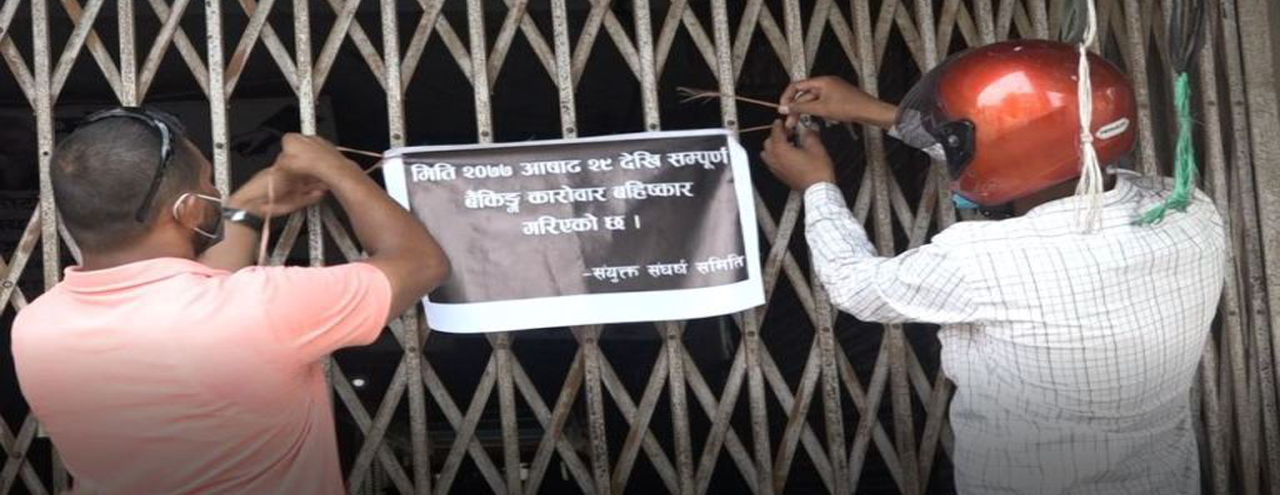 मिति २०७७ आषाढ २९ देखि सम्पूर्ण
बैंकिङ्ग कारोवार बहिष्कार
गरिएको छ ।
-संयुक्त संघर्ष समिति